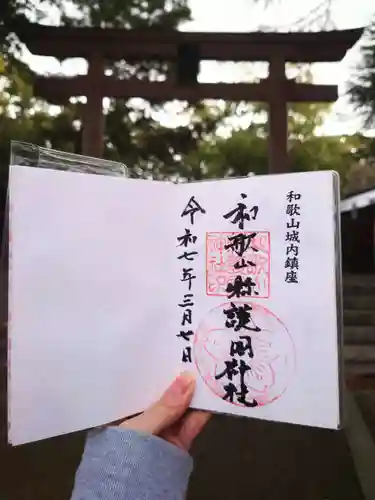 和歌山城内鎮座
和歌山縣護国神社
令和七年三月七日